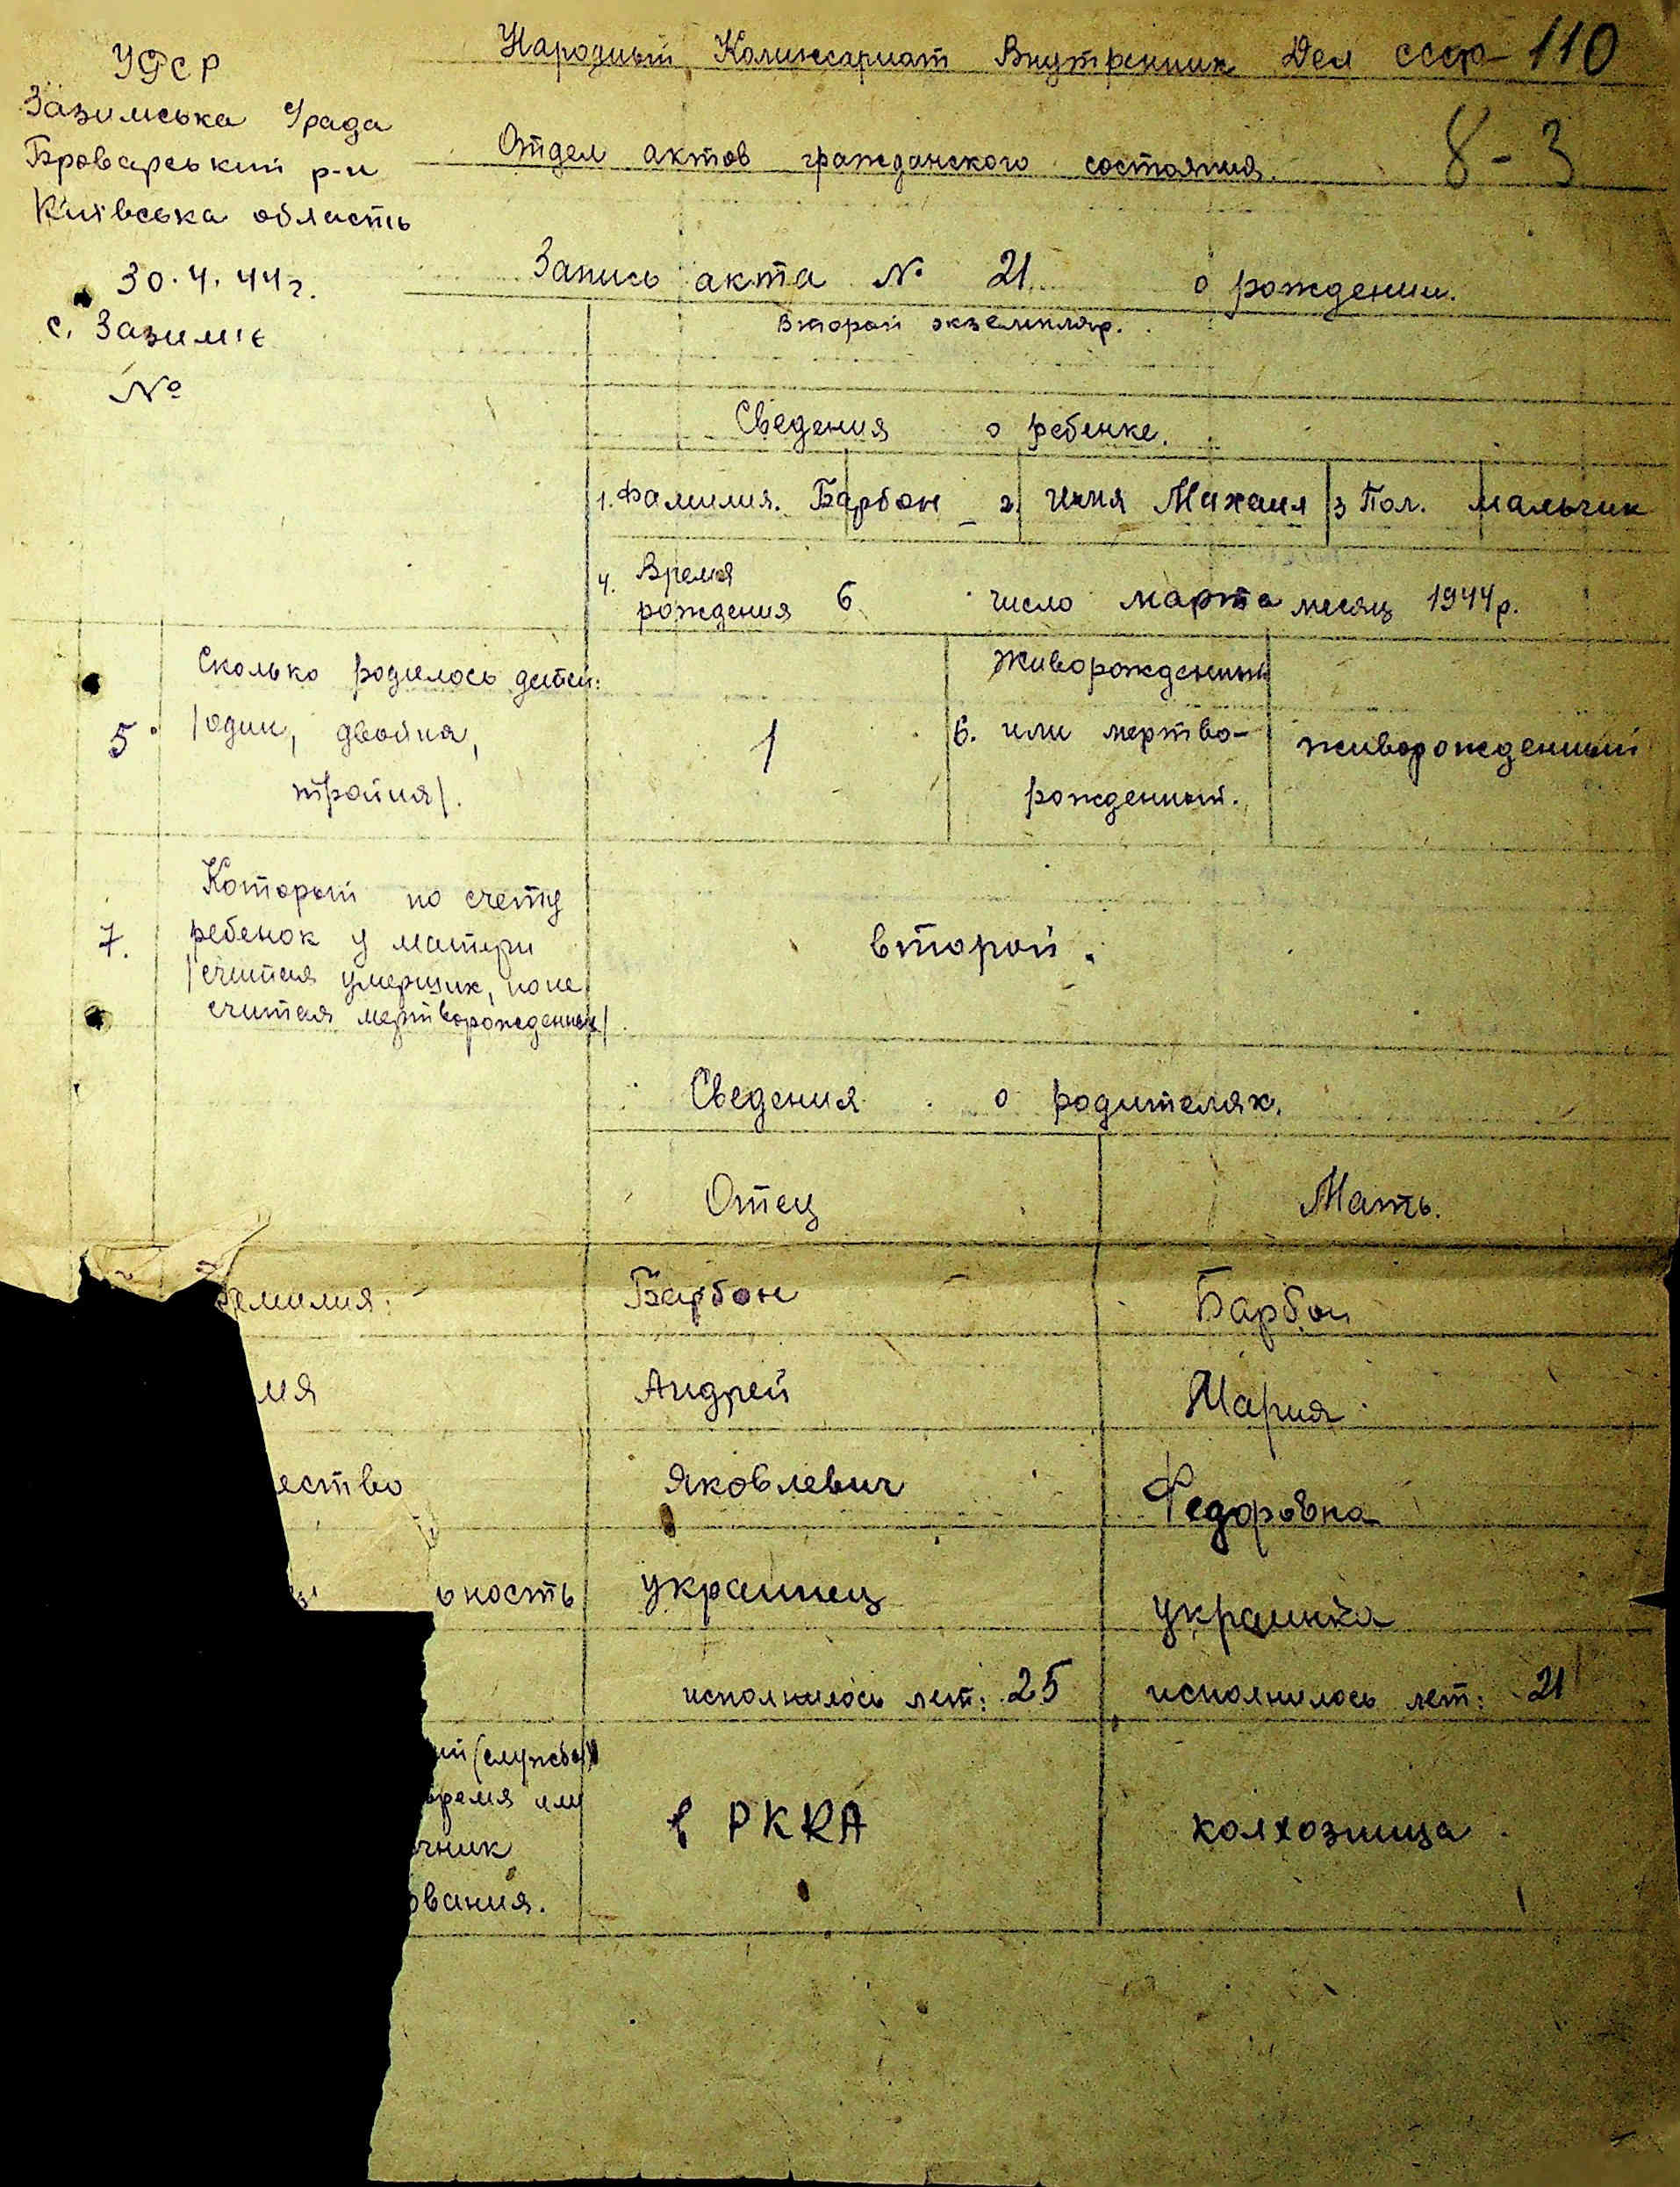 УССР
Зазимська С/рада
Броварський р-н
Київська область
30.4.44г.
с. Зазим'є
№
Народный Комиссариат Внутренних Дел СССР 110
Отдел актов гражданского состояния. 8-3
Запись акта № 21 о рождении.
Второй экземпляр.
Сведения о ребенке.
1. Фамилия. Барбон 2. имя Михаил 3 Пол. мальчик
4. Время рождения 6 число марта месяц 1944р.
5. Сколько родилось детей:
/один, двойня,
тройня/.
1
6. Живорожденный
или мертво-
рожденный.
живорожденный
7. Который по счету
ребенок у матери
/считая умерших, но не
считая мертворожденных/
второй.
Сведения о родителях.
Отец Мать.
амилия: Барбон Барбон
мя Андрей Мария
ество Яковлевич Федоровна
ьность украинец украинка
исполнилось лет: 25 исполнилось лет: 21
ий (службы)
время или
чник
ования.
в РККА колхозница